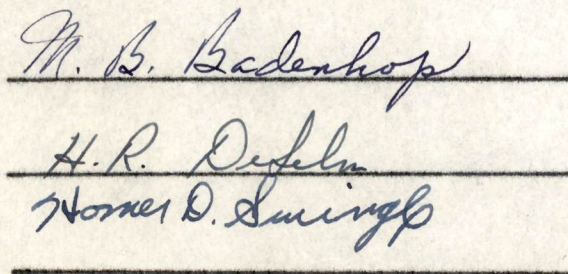 M. B. Badenhop
H. R. DeSelm
Homer D. Swingle